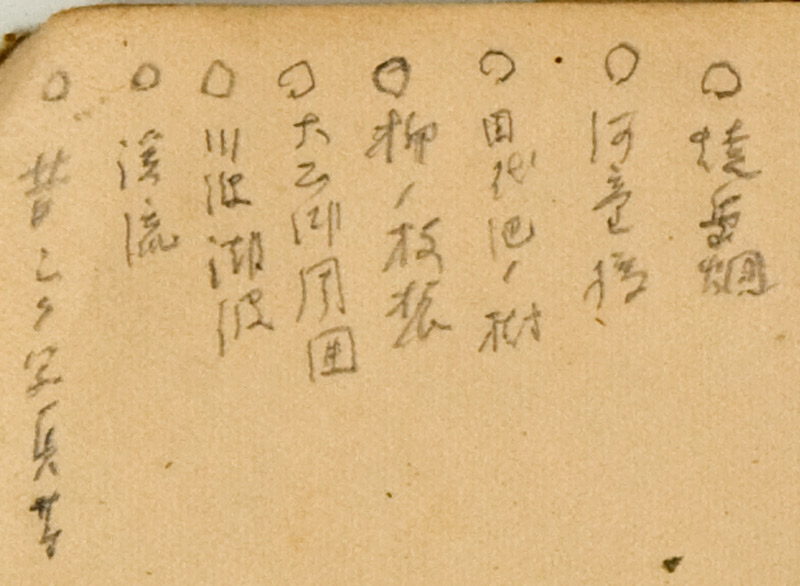 ○ 焼岳烟
○ 河童橋
○ 田代池ノ樹
○ 柳ノ枝振
○ 大正池周囲
○ 川波湖波
○ 渓流
○ 昔 写真